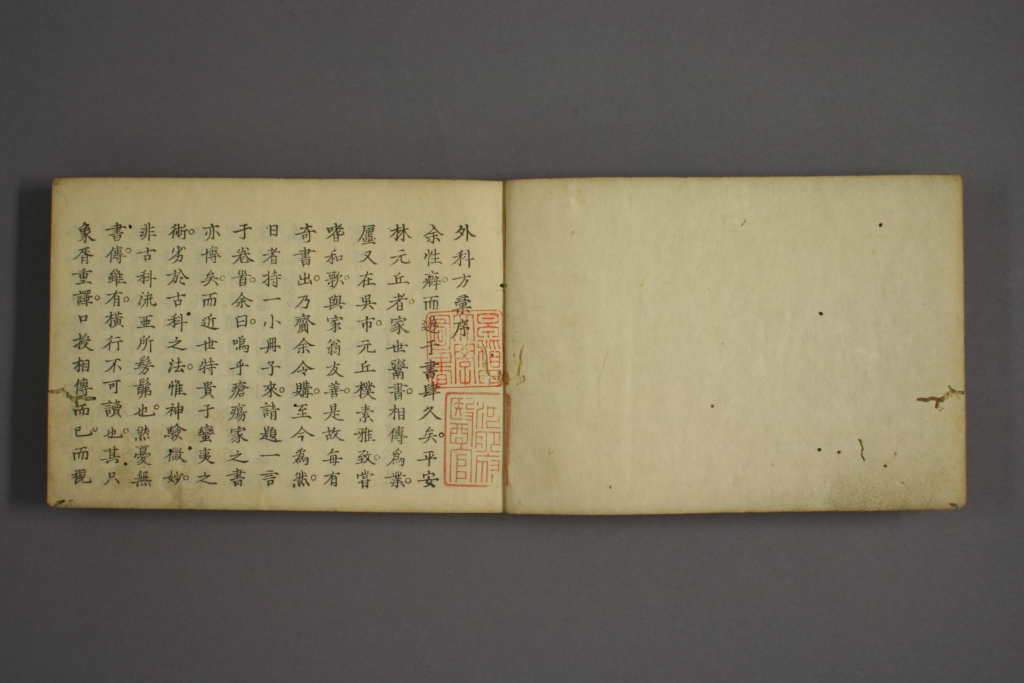 外科方彙序
余性癖而遊于書肆久矣。平安
林元丘者。家世鬻書。相傳為業。
廛又在吳市。元丘樸素雅致。嘗
嗜和歌。與家翁友善。是故每有
奇書出。乃齎余令購。至今為然。
日者持一小冊子來。請題一言
于卷首。余曰。嗚乎瘡瘍家之書
亦博矣。而近世特貴于蠻夷之
術。劣於古科之法。惟神驗微妙。
非古科流亞所髣髴也。然憂無
書傳。雖有。橫行不可讀也。其只
象胥重譯。口授相傳而已。而視
醫官